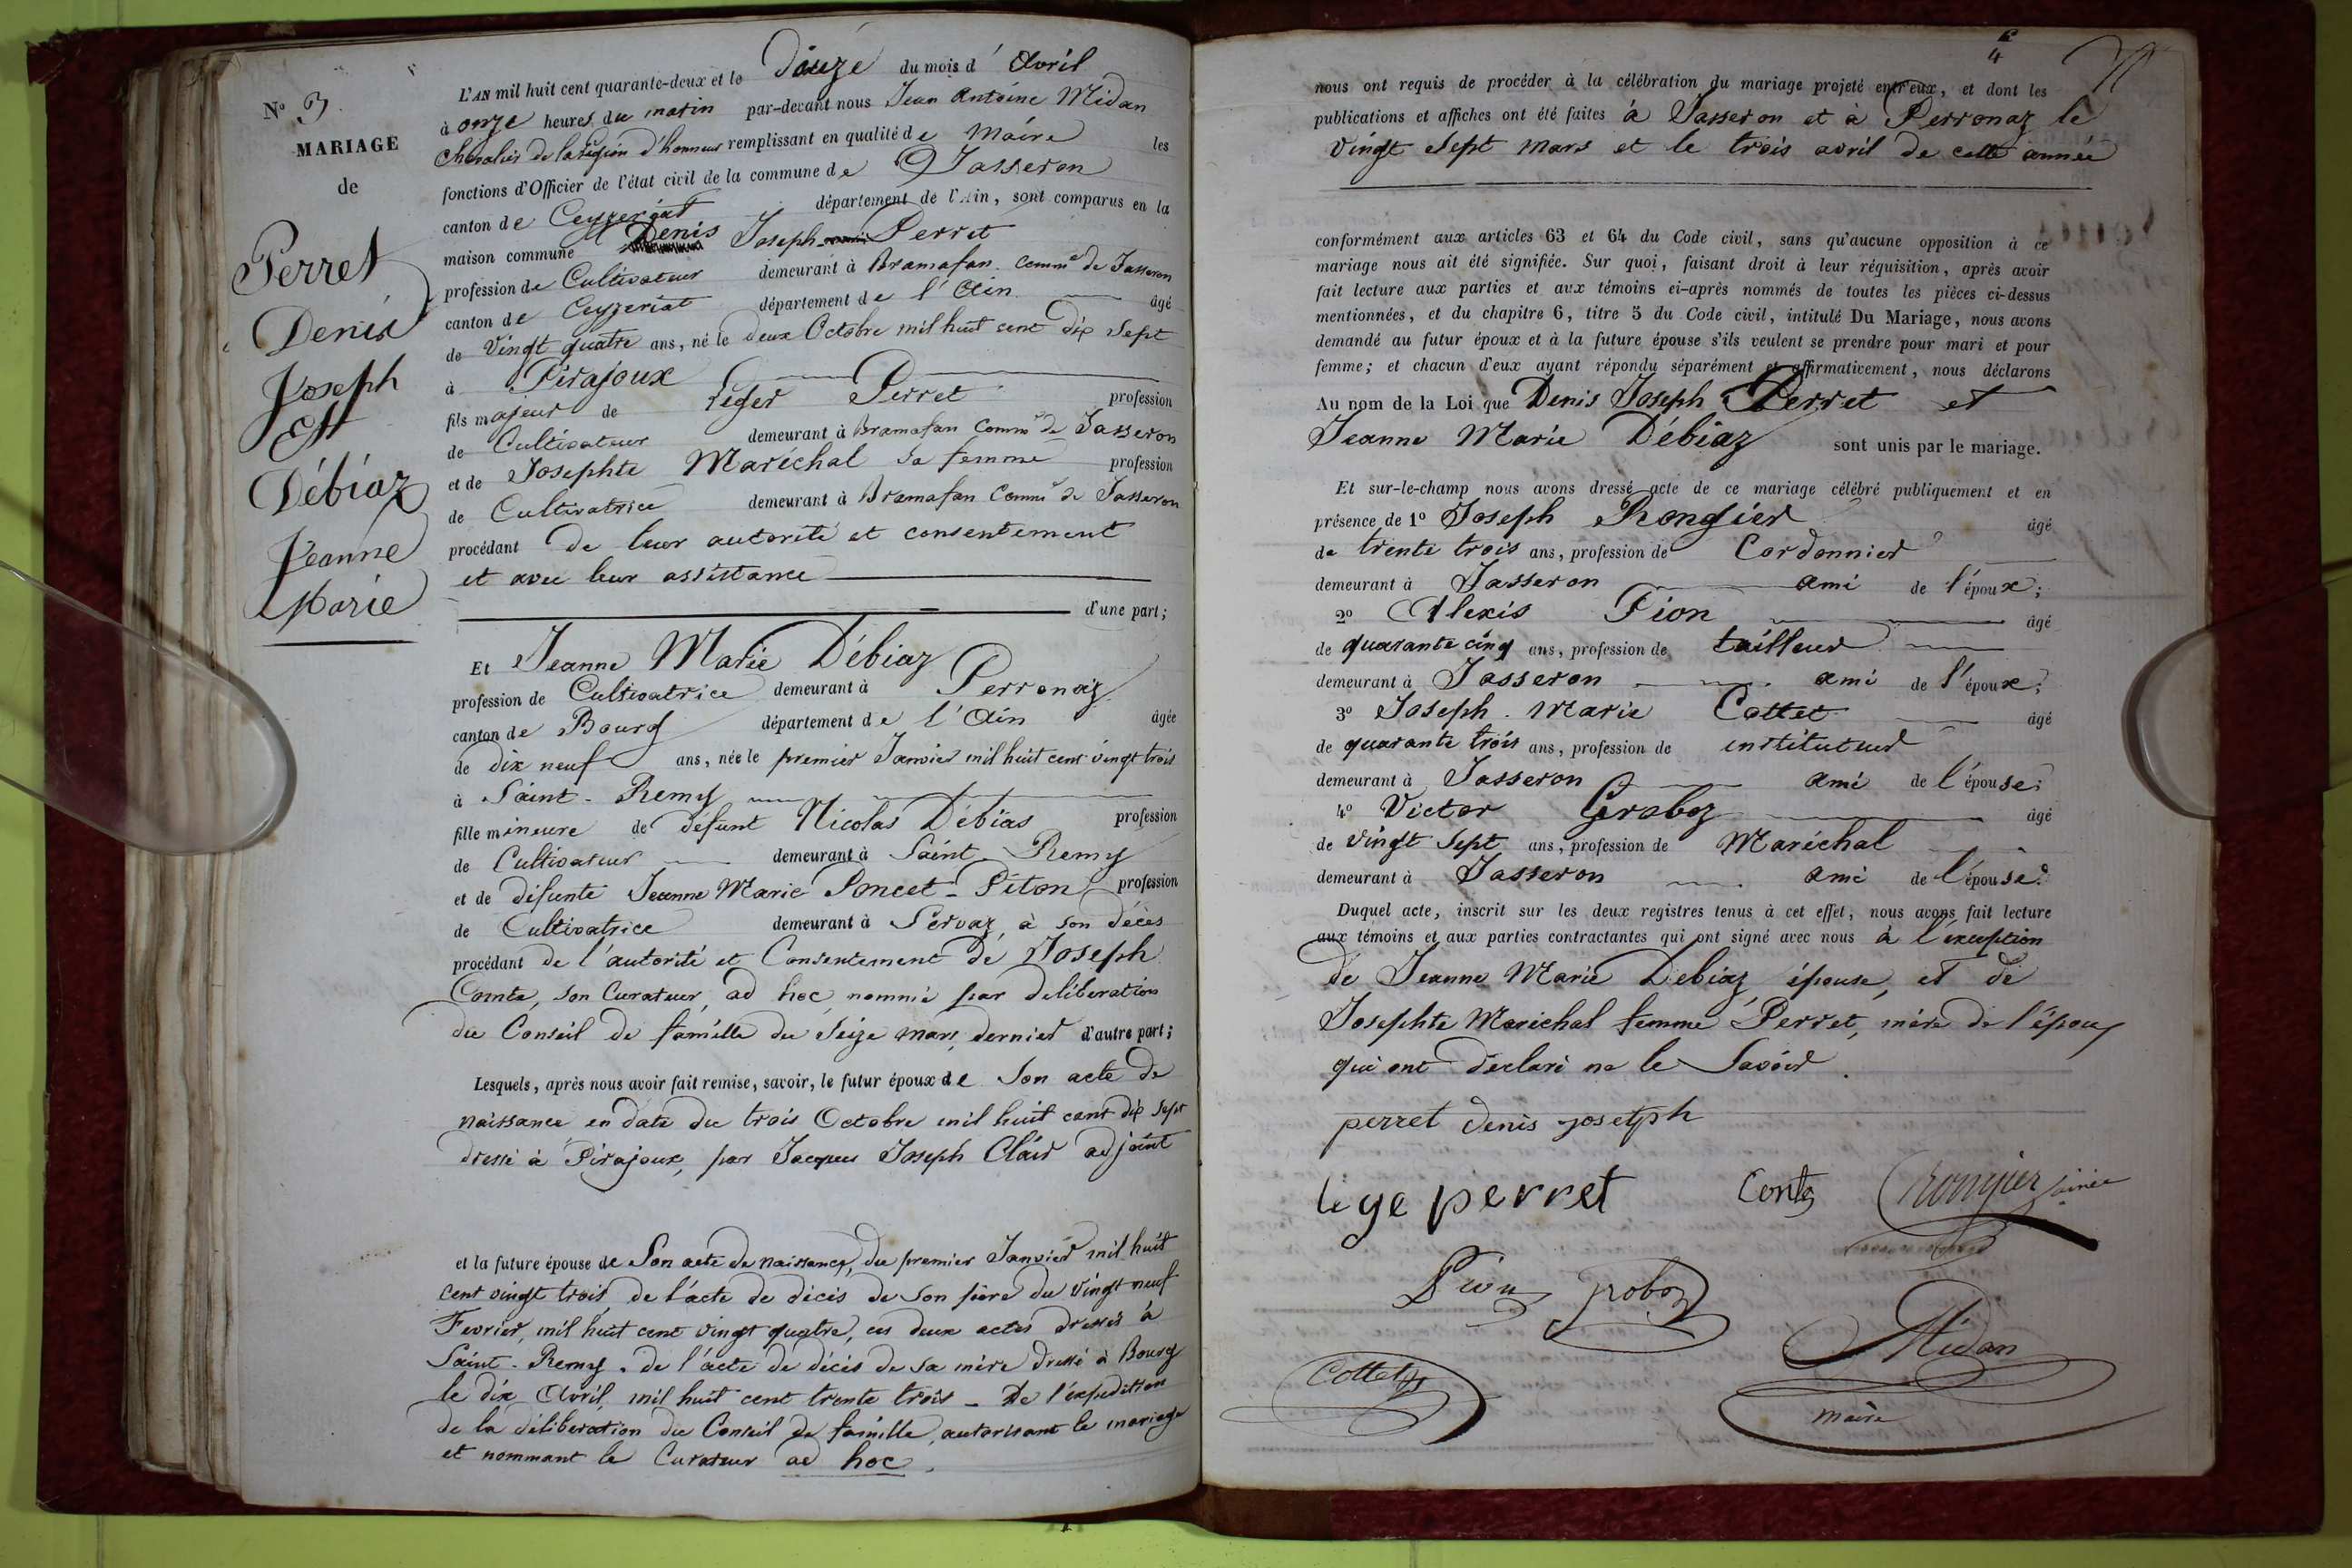 N° 3.
MARIAGE
de
Perret
Denis
Joseph
Et
Débiaz
Jeanne
Marie
L'AN mil huit cent quarante-deux et le Douze du mois d'Avril
à onze heures du matin par-devant nous Jean Antoine Midan
Chevalier de la Légion d'honneur remplissant en qualité de Maire les
fonctions d'Officier de l'état civil de la commune de Jasseron
canton de Ceyzeriat département de l'Ain, sont comparus en la
maison commune Denis Joseph Perret
profession de Cultivateur demeurant à Bramafan comme de Jasseron
canton de Ceyzeriat département de l'Ain âgé
de vingt quatre ans, né le deux Octobre mil huit cent dix sept
à Pirajoux
fils majeur de Léger Perret profession
de Cultivateur demeurant à Bramafan Comme de Jasseron
et de Josephte Maréchal sa femme profession
de Cultivatrice demeurant à Bramafan Comme de Jasseron
procédant de leur autorité et consentement
et avec leur assistance
d'une part;
Et Jeanne Marie Débiaz
profession de Cultivatrice demeurant à Perronaz
canton de Bourg département de l'Ain âgée
de dix neuf ans, née le premier Janvier mil huit cent vingt trois
à Saint-Remy
fille mineure de défunt Nicolas Débias profession
de Cultivateur demeurant à Saint-Remy
et de défunte Jeanne Marie Poncet-Piton profession
de Cultivatrice demeurant à Servaz, à son décès
procédant de l'autorité et Consentement de Joseph
Comte, son Curateur ad hoc nommé par délibération
du Conseil de famille du Seize mars dernier d'autre part;
Lesquels, après nous avoir fait remise, savoir, le futur époux de Son acte de
naissance en date du trois Octobre mil huit cent dix sept
dressé à Pirajoux, par Jacques Joseph Clair adjoint
et la future épouse de Son acte de naissance, du premier Janvier mil huit
cent vingt trois, de l'acte de décès de son père du vingt neuf
Fevrier, mil huit cent vingt quatre, ces deux actes dressés à
Saint-Remy. de l'acte de décès de sa mère dressé à Bourg
le dix Avril, mil huit cent trente trois - De l'expedition
de la délibération du Conseil de famille, autorisant le mariage
et nommant le Curateur ad hoc.
4
nous ont requis de procéder à la célébration du mariage projeté entr'eux, et dont les
publications et affiches ont été faites à Jasseron et à Perronaz le
vingt sept mars et le trois avril de cette année
conformément aux articles 63 et 64 du Code civil, sans qu'aucune opposition à ce
mariage nous ait été signifiée. Sur quoi, faisant droit à leur réquisition, après avoir
fait lecture aux parties et aux témoins ci-après nommés de toutes les pièces ci-dessus
mentionnées, et du chapitre 6, titre 5 du Code civil, intitulé Du Mariage, nous avons
demandé au futur époux et à la future épouse s'ils veulent se prendre pour mari et pour
femme; et chacun d'eux ayant répondu séparément et affirmativement, nous déclarons
Au nom de la Loi que Denis Joseph Perret et
Jeanne Marie Débiaz sont unis par le mariage.
Et sur-le-champ nous avons dressé acte de ce mariage célébré publiquement et en
présence de 1° Joseph Rongier âgé
de trente trois ans, profession de Cordonnier
demeurant à Jasseron ami de l'époux;
2° Alexis Pion âgé
de quarante cinq ans, profession de tailleur
demeurant à Jasseron ami de l'époux;
3° Joseph Marie Cottet âgé
de quarante trois ans, profession de instituteur
demeurant à Jasseron ami de l'épouse;
4° Victor Groboz âgé
de vingt sept ans, profession de Maréchal
demeurant à Jasseron ami de l'épouse.
Duquel acte, inscrit sur les deux registres tenus à cet effet, nous avons fait lecture
aux témoins et aux parties contractantes qui ont signé avec nous à l'exception
de Jeanne Marie Debiaz, épouse, et de
Josephte Maréchal femme Perret, mère de l'époux
qui ont déclaré ne le Savoir.
perret denis josetph
lige perret Conte Rongier ainée
Pion groboz
Midan
Cottet
maire